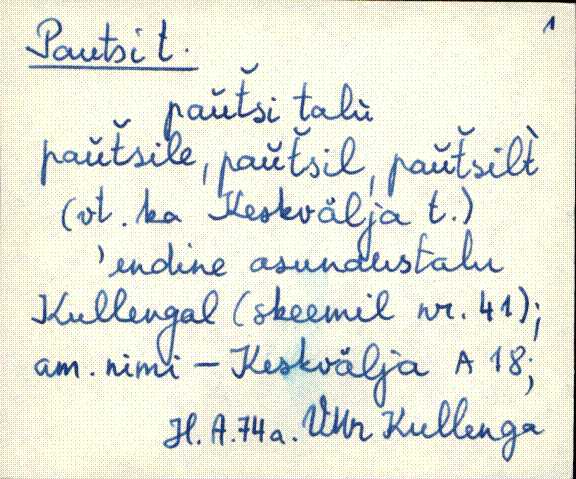 1
Pautsi t.
paŭt̆si talù
paŭt̆sile, paŭt̆sil, paŭt̆silt̀
(vt. ka Keskvälja t.)
'endine asundustalu
Kullengal (skeemil nr. 41);
am. nimi – Keskvälja A 18;
H. A. 74a. VMr Kullenga